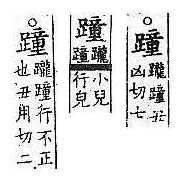 ○蹱
躘蹱丑
凶切七
蹱
躘
蹱
小兒
行皃
○蹱
躘蹱行不正
也丑用切二